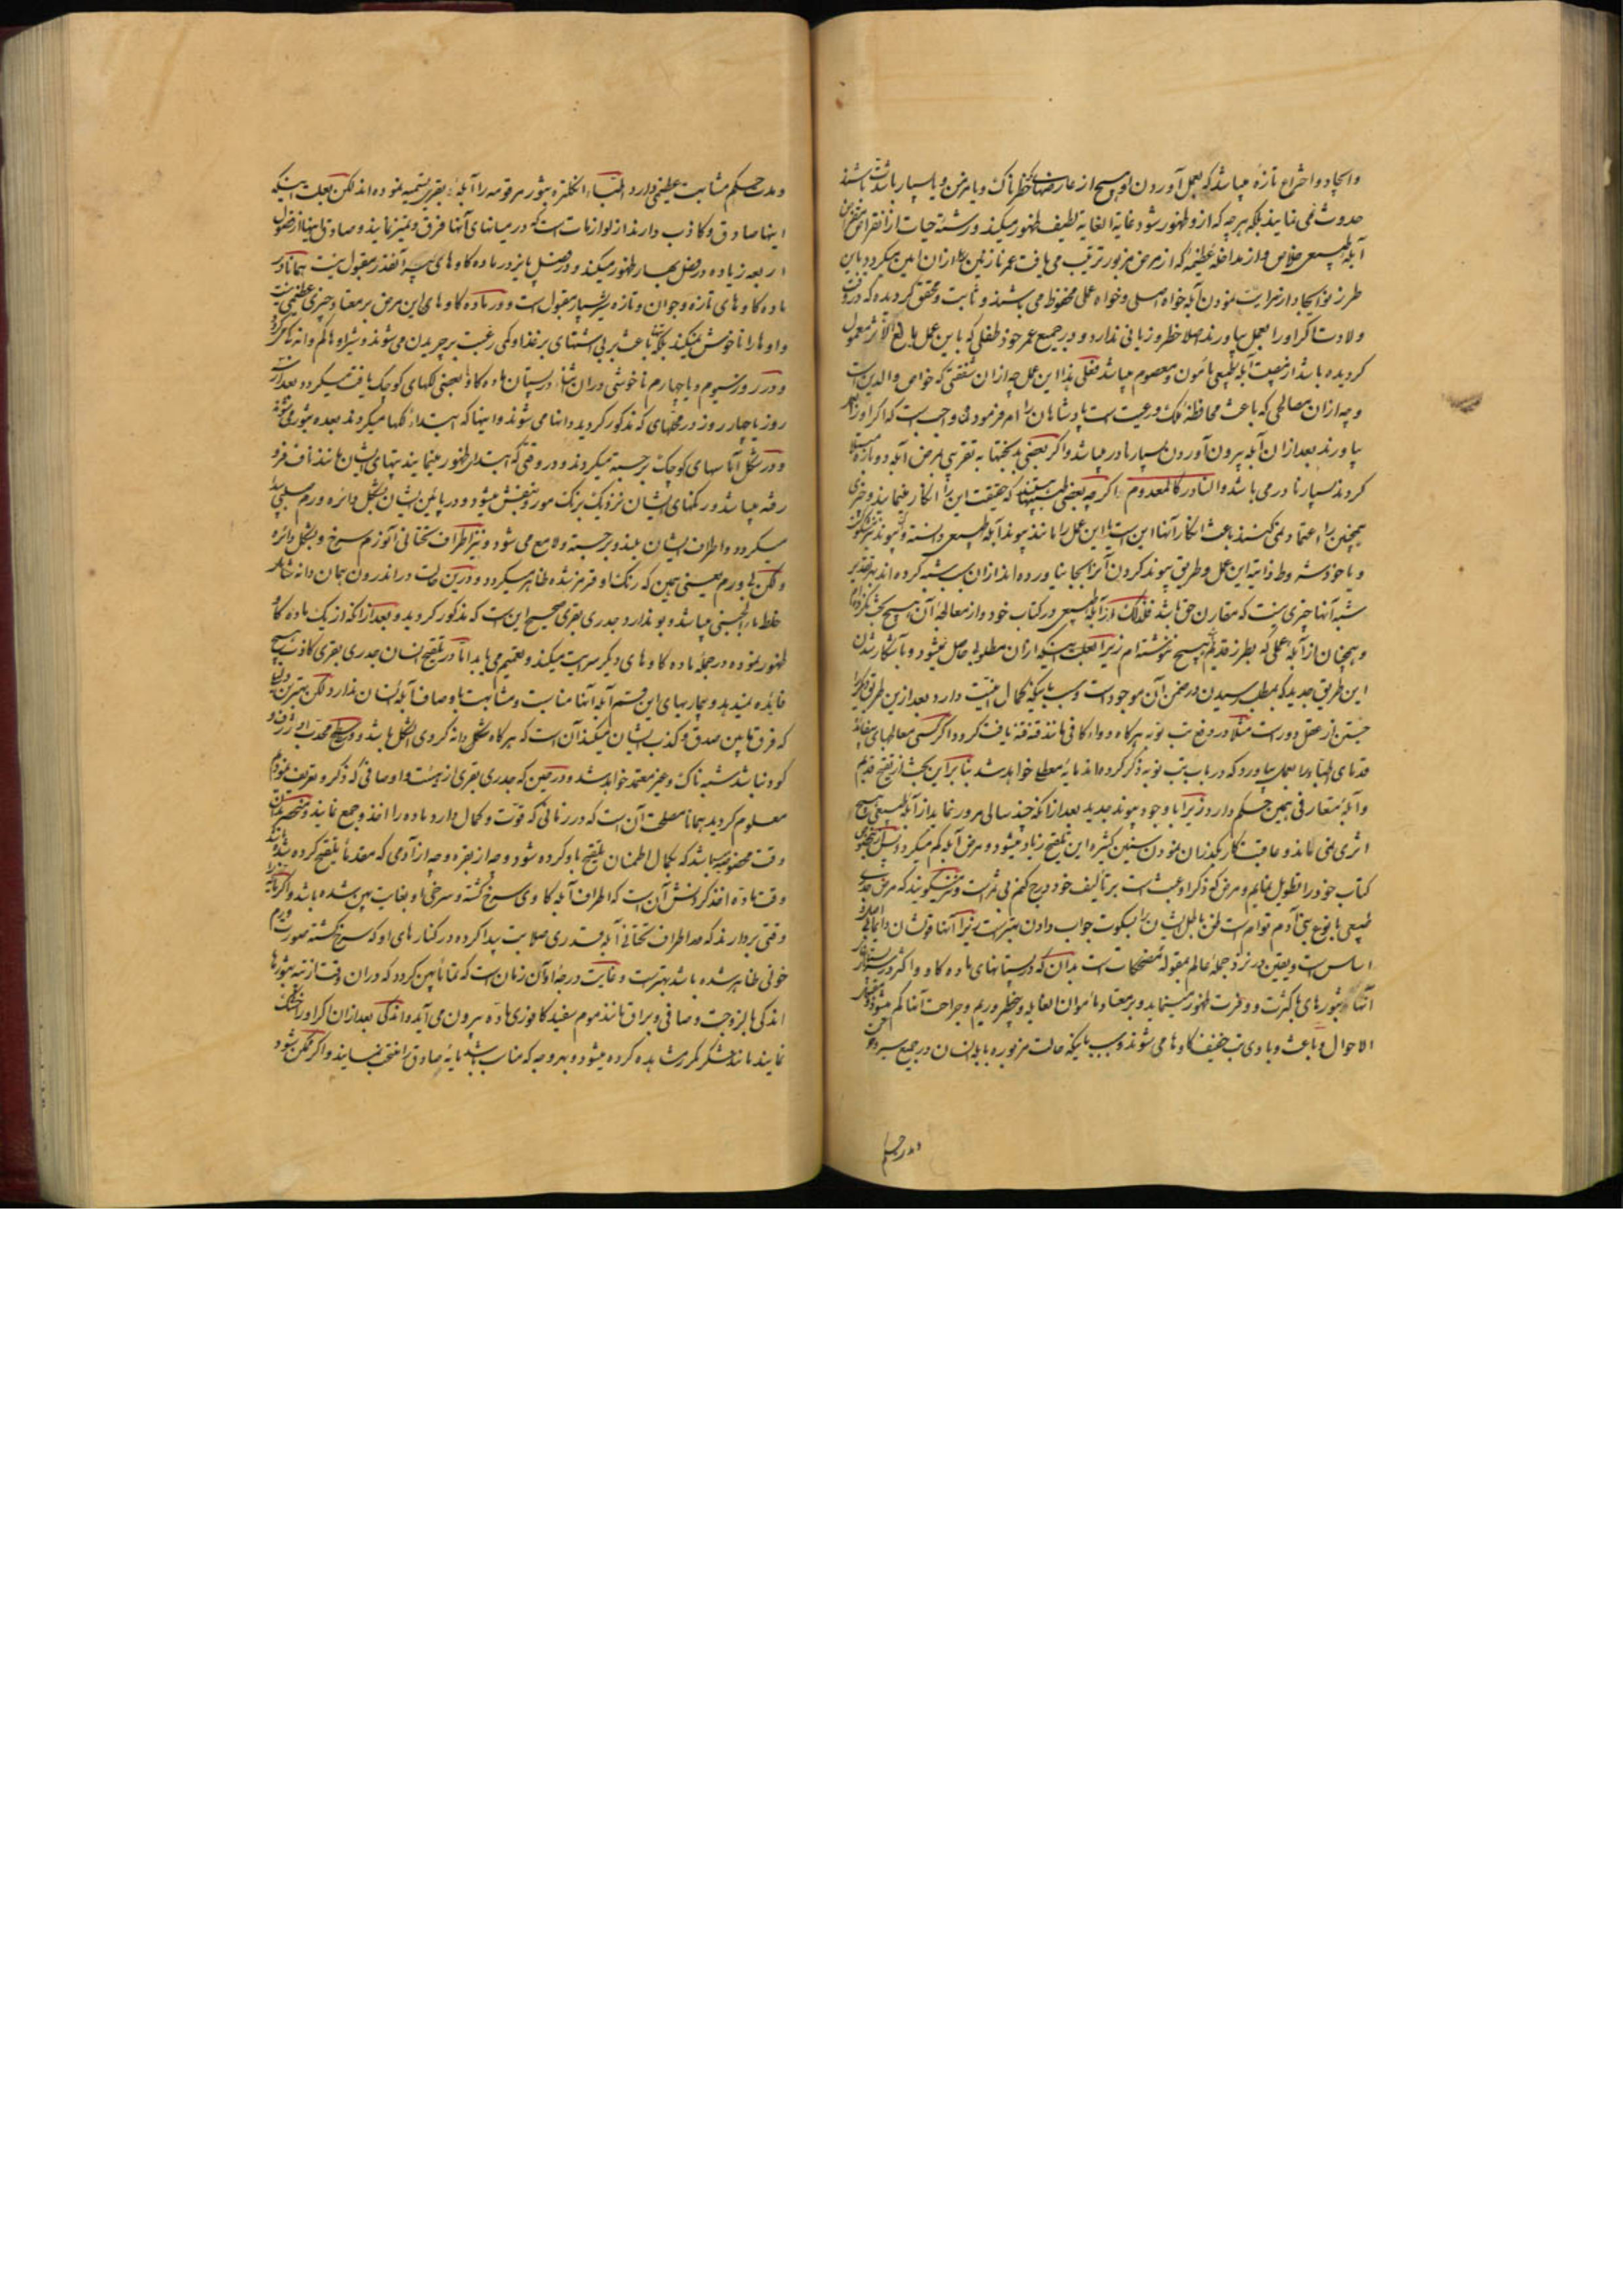 وایجاد و اختراع تازه میباشد که بعمل آوردن او هیچ از عارضهای خطرناک و یا مزمن و یا بسیار با شدت باشند
حدوث نمی نمایند بلکه هر چه که ازو ظهور شود غایة الغایه لطیف ظهور میکند و رشتهٔ حیات از انقراض
آبلهٔ طبیعی خلاص و از مداخلهٔ عظیمه که از مرض مزبور ترتیب می یافت عمر نازنین بعد ازان امین میگردد باین
طرز نو ایجاد از سرایت نمودن آبله خواه اصلی و خواه عملی محفوظ می باشند و ثابت و محقق گردیده که در وقت
ولادت اگر او را بعمل بیاورند اصلا خطر و زیانی ندارد و در جمیع عمر خود طفلی که باین عمل بالغ الاثر معمول
گردیده باشد از مصیبت آبلهٔ طبیعی مأمون و معصوم میباشد فعلی هذا این عمل چه ازان شفقتی که خواص والدین است
و چه ازان مصالحی که باعث محافظهٔ ملک و رعیت است پادشاهان را امر فرمودن واجب است که اگر او را بعمل
بیاورند بعد ازان آبله بیرون آوردن بسیار نادر میباشد و اگر بعضی بدبختها به تقریبی بمرض آبله دوباره مبتلا
گردند بسیار نادر می باشد والنادر کالمعدوم اگر چه بعضی طبیبها هستند که حقیقت این را انکار مینمایند و خبری
همچنین را اعتماد نمی کنند باعث انکار آنها این است یا این عمل را مانند پیوند آبلهٔ طبیعی دانسته
و یا خود شروط لازمهٔ این عمل و طریق پیوند کردن آنرا بجا نیاورده اند ازان سبب شبه کرده اند بهر تقدیر
شبه آنها چیزی نیست که مقارن حق باشد فلذلک از آبلهٔ طبیعی در کتاب خود و از معالجهٔ آن هیچ بحث نکرده ام
و همچنان از آبلهٔ عملی که بطرز قدیم هیچ ننوشته ام زیرا بعلت اینکه ازان مطلوبی حاصل نمیشود و با آشکار شدن
این طریق جدید که بمطلب رسیدن در ضمن آن موجود است و بسبب اینکه کمال امنیت دارد بعد ازین طریق دیگر را
جستن از عقل دور است مثلا در دفع تب نوبه هرگاه دواء کافی مانند قنه قنه یافت گردد اگر کسی معالجهای بیفائدهٔ
قدمای اطباء را بعمل بیاورد که در باب تب نوبه ذکر کرده اند مایهٔ معطلی خواهد شد بنابراین بحث از تلقیح قدیم
و آبلهٔ متعارفی همین حکم دارد زیرا با وجود پیوند جدید بعد از آنکه چند سالی مرور نماید از آبلهٔ طبیعی هیچ
اثری نمی ماند و عاقبت کار بگذران نمودن سنین کثیره این تلقیح زیاد میشود و مرض آبله کم میگردد
کتاب خود را تطویل بنمایم و مرضی که ذکر او عبث است بر تألیف خود درج کنم بی ثمر است و نیز میگویند که مرض جدری
طبیعی با نوع بنی آدم توام است ظن باطل ایشان را بسکوت جواب دادن بهتر است زیرا آنها قولشان
اساس است و یقین در نزد جملهٔ عالم بمقولهٔ مضحکات است بدان که در پستانهای ماده گاو و اکثر
آنها بثورهای بکثرت و وفرت ظهور مینماید و بر معتاد مأمون الغایه و بیخطر و ریم و جراحت آنها کم میشود
الاحوال و باعث و بادی تب خفیف گاوها می شوند و بسبب اینکه حالت مزبوره با آبلهٔ انسان در جمیع سیر
و مدت حکم
و مدت حکم مشابهت عظیمی دارد اطباء انگلتره بثور مرقومه را آبلهٔ بقری تسمیه نموده اند لکن بعلت اینکه
اینها صادق و کاذب دارند از لوازمات است که در میانهای آنها فرق و تمیز نمایند و صادق اینها از فصول
اربعه زیاده در فصل بهار ظهور میکند و در فصل پاییز در ماده گاوهای پیر آنقدر مقبول نیست همانا در
ماده گاوهای تازه و جوان و تازه شیر بسیار مقبول است و در ماده گاوهای این مرض بر معتاد چیزی عظیمی نیست
و اوها را ناخوش نمیکند بلکه باعث بر بی اشتهای بر غذا و کمی رغبت بر چریدن می شوند و شیر اوها کم
و در روز سیوم و یا چهارم ناخوشی دران اثناء در پستان ماده گاو بعضی لکهای کوچک یافت میگردد بعد از سه
روز یا چهار روز در محلهای که مذکور گردید دانها می شوند و اینها که ابتداءً لکها میگردند بعده بثور می شوند
و در شکل آماسهای کوچک برجسته میگردند و در وقتی که ابتدا ظهور مینمایند تپهای ایشان مانند ناف فرو
رفته میباشد و رنگهای ایشان نزدیک برنگ مور و بنفش میشود و در پائین ایشان بشکل دائره ورم صلبی پیدا
میگردد و اطراف ایشان بلند و برجسته و لامع می شود و نیز اطراف تحتانی آنورم سرخ و بشکل دائره
و لکن بی ورم یعنی همین که رنگ او قرمز شده ظاهر میگردد و درین حالت در اندرون همان دانه
خلط مایی لجنی میباشد و بو ندارد جدری بقری صحیح این است که مذکور گردید و بعد از آنکه از یک ماده گاو
ظهور نموده در جملهٔ ماده گاوهای دیگر سرایت میکند و تعمیم می یابد اما در تلقیح انسان جدری بقری کاذب هیچ
فایده نمیدهد و بیماریهای این قسم آبله آنها مناسبت و مشابهت باوصاف آبلهٔ انسان ندارد لکن بهترین
که فرق مابین صدق و کذب ایشان میکند آن است که هرگاه شکل دانه کروی الشکل باشد و در سطح محدب او ژرف و
گود نباشد شبه ناک و غیر معتمد خواهد شد و در حین که جدری بقری از هیئت و اوصافی که ذکر و تعریف نمودم
معلوم گردید همانا مصلحت آن است که در زمانی که قوت و کمال دارد ماده را اخذ و جمع نمایند
وقت مخصوصه میباشد که بکمال اطمینان تلقیح باو کرده شود و چه از بقره و چه از آدمی که مقدماً تلقیح کرده شده
وقت ماده اخذ کردنش آن است که اطراف آبلهٔ گاوی سرخ گشته و سرخی او بغایت پهن شده باشد و اگر مایه را
وقتی بردارند که در اطراف تحتانی آبله قدری صلابت پیدا کرده و در کنارهای او که سرخ گشته صورت ورم
خونی ظاهر شده باشد بهتر است و غایت درجهٔ او آن زمان است که تماماً پهن گردد که دران وقت از تپه بثورها
اندکی بالزوجت و صافی و براق مانند موم سفید کافوری ماده بیرون می آید و اندکی بعد ازان اگر او را خشک
نمایند مانند شکر مکرر مشاهده کرده میشود و بهر وجه که مناسب باشد مایهٔ صادق را منتخب نمایند و اگر ممکن شود